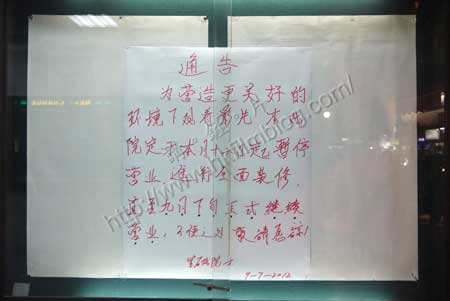 通告
为营造更美好的
环境下观看影光,本电
院定于本月十六日起暂停
营业,进行全面装修,
直至九月下旬正式继续
营业,不便之处敬请愿谅!
9-7-2012